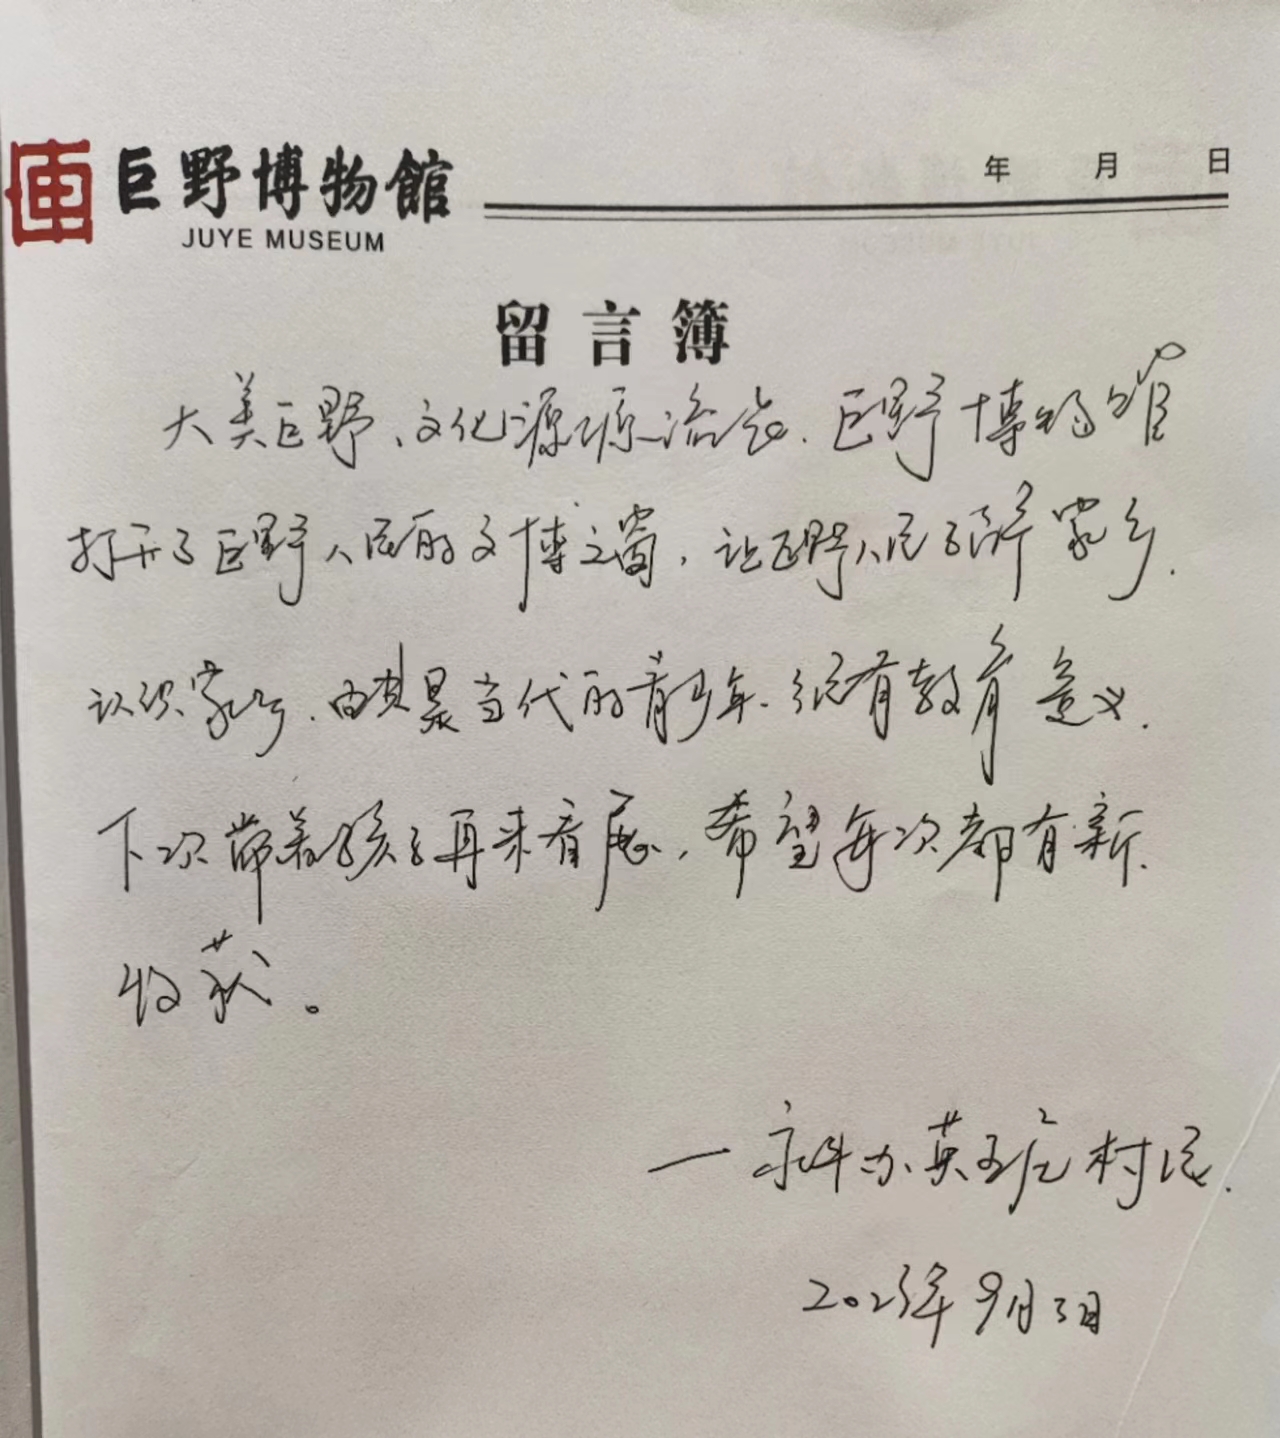 巨野博物館
年 月 日
JUYE MUSEUM
留言簿
大美巨野、文化源源流长. 巨野博物馆
打开了巨野人民的文博之窗, 让巨野人民了解家乡.
认识家乡. 尤其是当代的青少年. 很有教育意义.
下次带着孩子再来看展, 希望每次都有新
收获。
一 办英王庄村民.
2023年9月3日